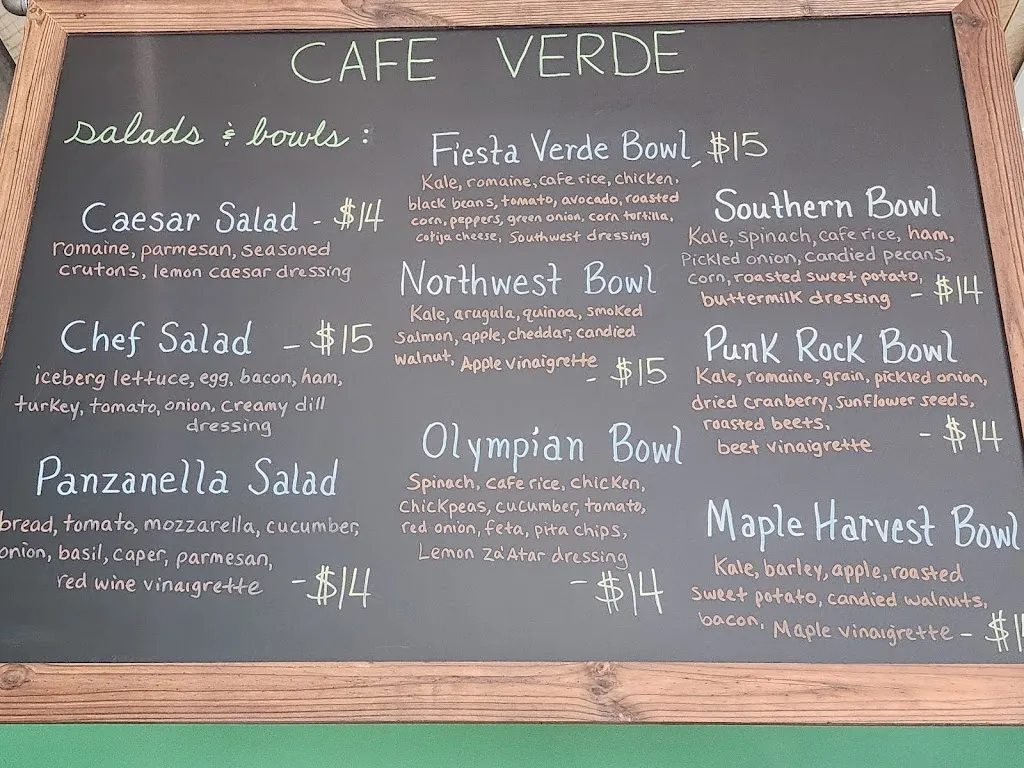 CAFE VERDE
salads & bowls :
Caesar Salad - $14
romaine, parmesan, seasoned
crutons, lemon caesar dressing
Chef Salad - $15
iceberg lettuce, egg, bacon, ham,
turkey, tomato, onion, creamy dill
dressing
Panzanella Salad
bread, tomato, mozzarella, cucumber,
onion, basil, caper, parmesan,
red wine vinaigrette - $14
Fiesta Verde Bowl - $15
Kale, romaine, cafe rice, chicken,
black beans, tomato, avocado, roasted
corn, peppers, green onion, corn tortilla,
cotija cheese, Southwest dressing
Northwest Bowl
Kale, arugula, quinoa, smoked
Salmon, apple, cheddar, candied
walnut, Apple vinaigrette
- $15
Olympian Bowl
Spinach, cafe rice, chicken,
Chickpeas, cucumber, tomato,
red onion, feta, pita chips,
Lemon Za'Atar dressing
- $14
Southern Bowl
Kale, spinach, cafe rice, ham,
Pickled onion, candied pecans,
corn, roasted sweet potato,
buttermilk dressing - $14
Punk Rock Bowl
Kale, romaine, grain, pickled onion,
dried cranberry, sunflower seeds,
roasted beets,
beet vinaigrette - $14
Maple Harvest Bowl
Kale, barley, apple, roasted
sweet potato, candied walnuts,
bacon, Maple vinaigrette - $1